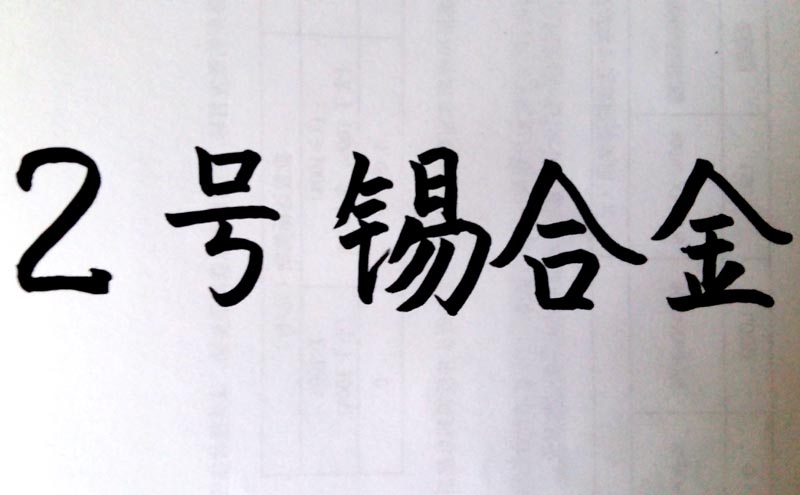 2号锡合金